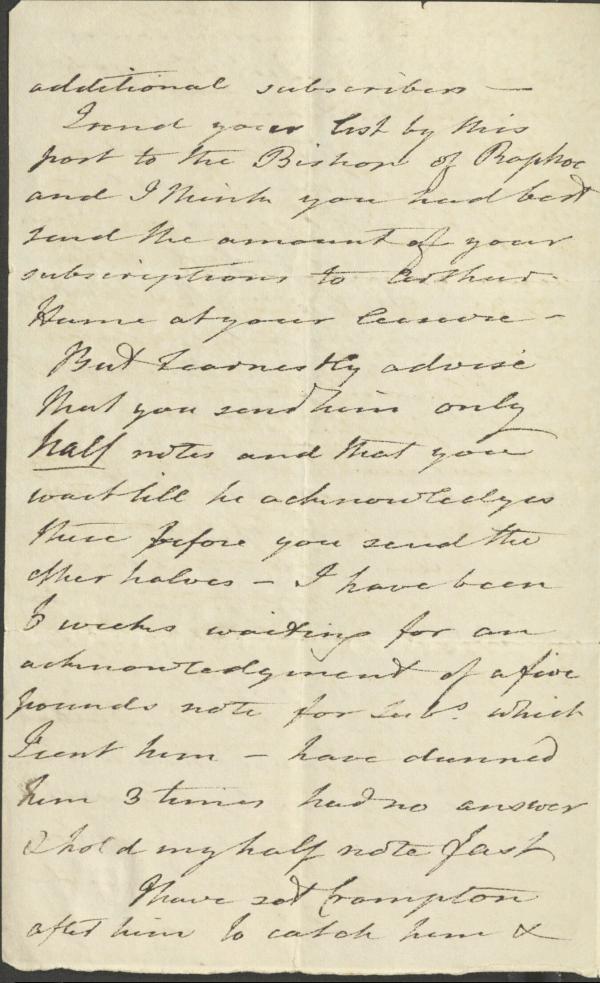 additional subscribers —
I send your list by this
post to the Bishop of Raphoe
and I think you had best
send the amount of your
subscriptions to Arthur
Hume at your leisure —
But I earnestly advise
that you send him only
half notes and that you
wait till he acknowledges
these before you send the
other halves — I have been
6 weeks waiting for an
acknowledgment of a five
pounds note for subs. which
I sent him — have dunned
him 3 times had no answer
& hold my half note fast
I have set Crampton
after him to catch him &